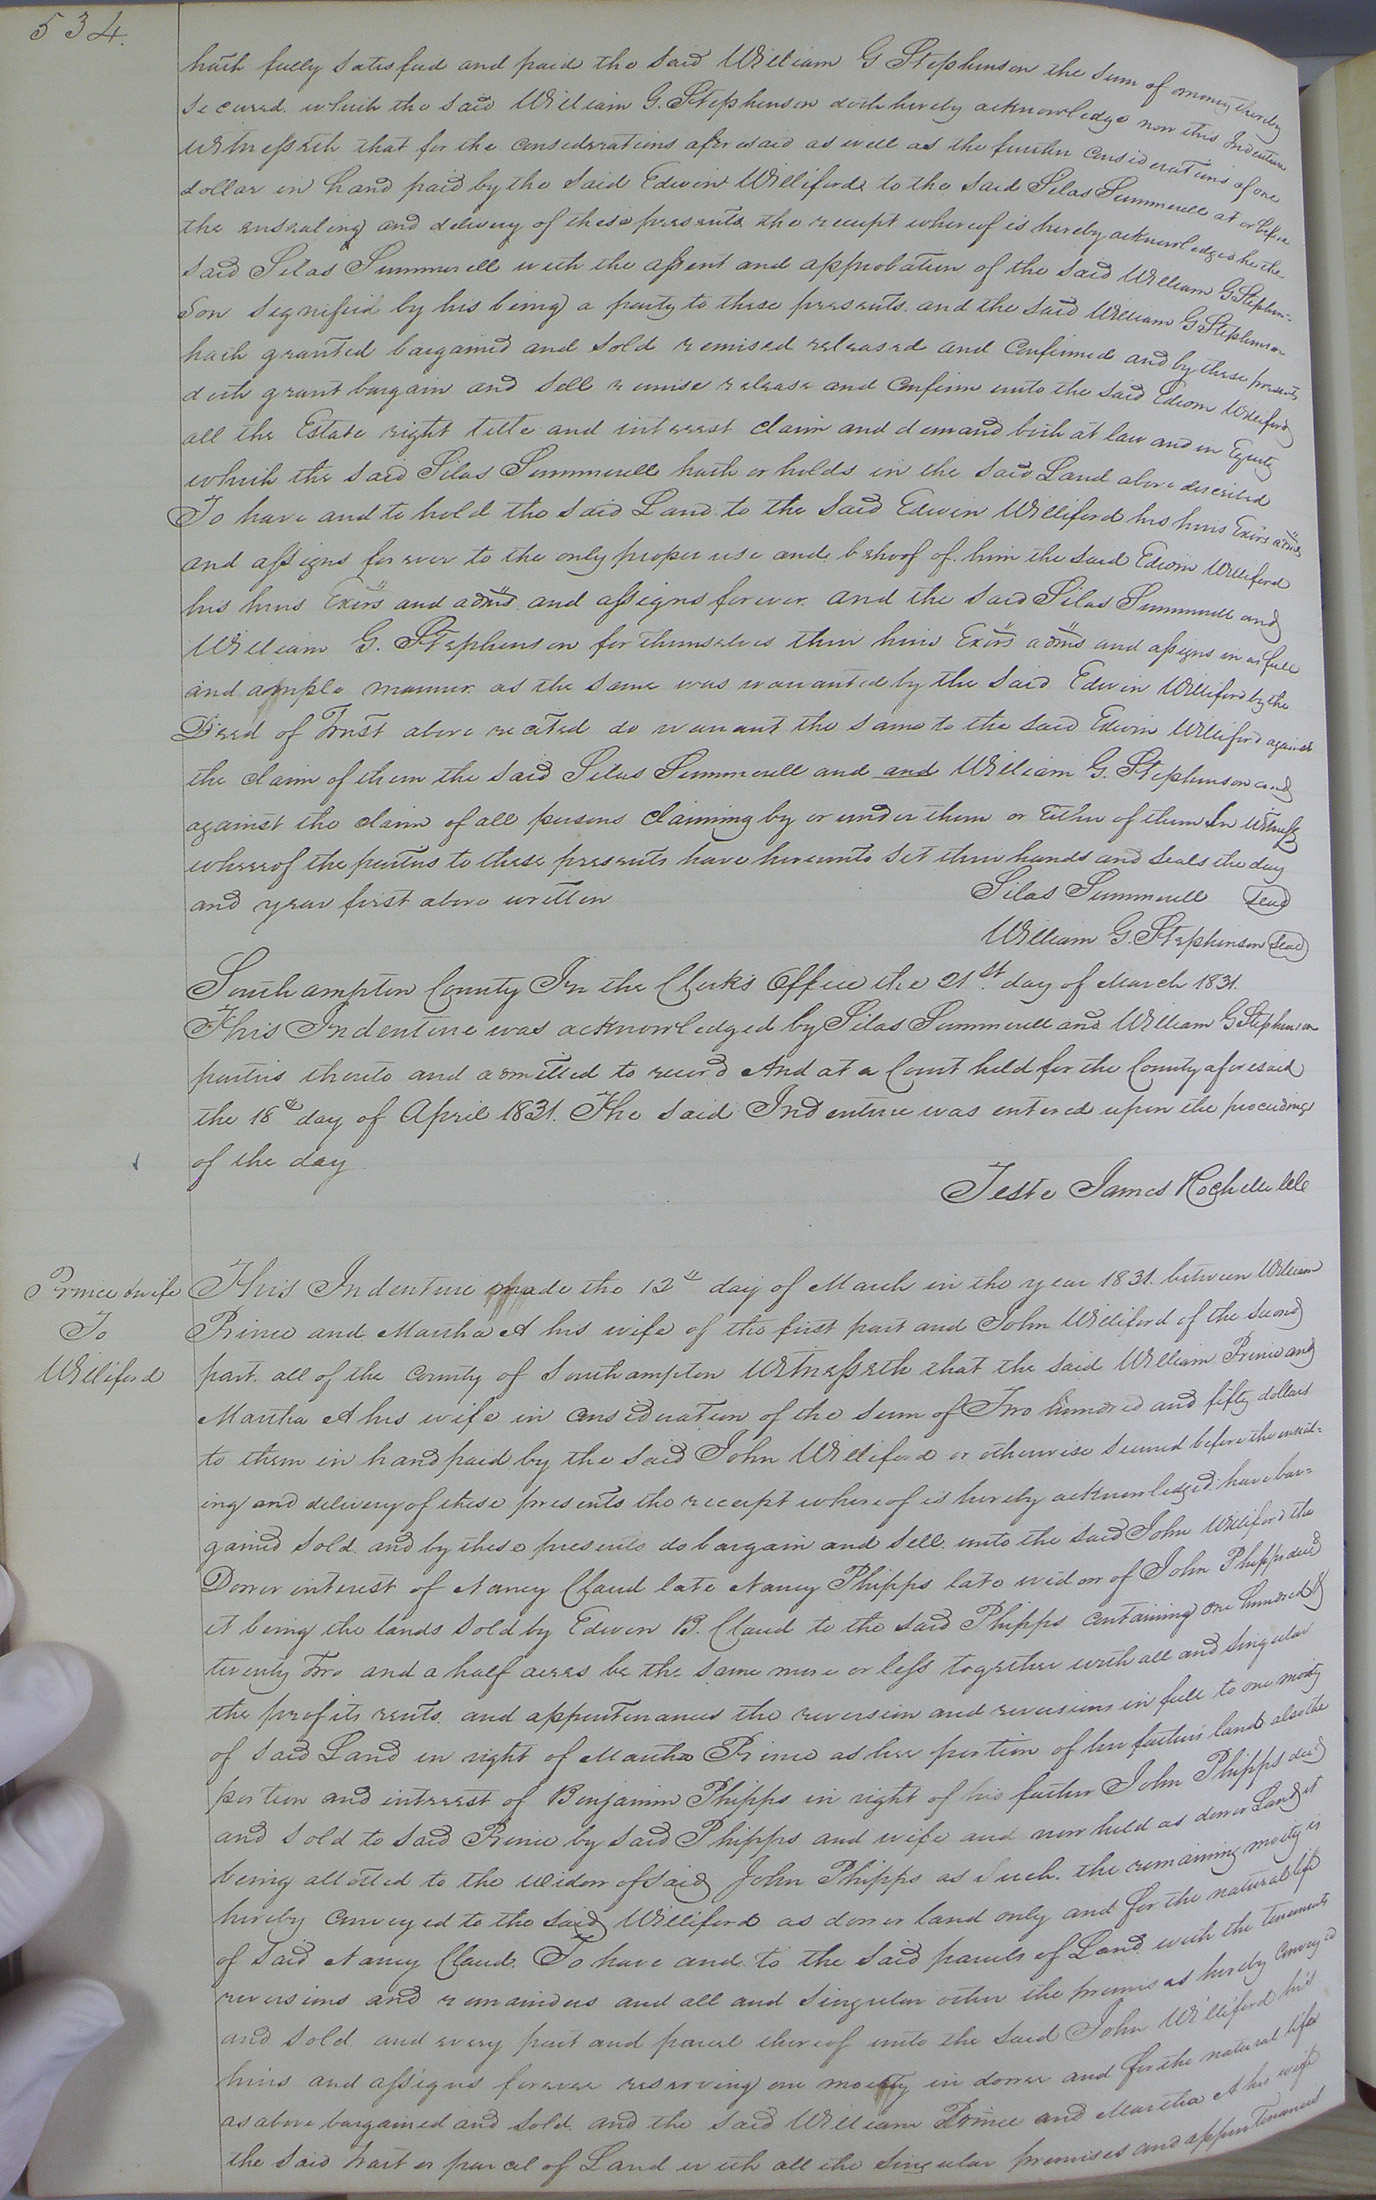 534.
hath fully satisfied and paid the said William G Stephenson the sum of money thereby
secured which the said William G. Stephenson doth hereby acknowledge now this Indenture
witnesseth that for the considerations aforesaid as well as the further considerations of one
dollar in hand paid by the said Edwin Williford to the said Silas Summerell at or before
the ensealing and delivery of these presents the receipt whereof is hereby acknowledged he the
said Silas Summerell with the assent and approbation of the said William G Stephen-
son signified by his being a party to these presents. and the said William G Stephenson
hath granted bargained and sold remised released and confirmed and by these presents
doth grant bargain and sell remise release and confirm unto the said Edwin Williford
all the Estate right title and interest claim and demand both at law and in Equity
which the said Silas Summerell hath or holds in the said Land above described
To have and to hold the said Land to the said Edwin Williford his heirs Exōrs adm̄s
and assigns forever to the only proper use and behoof of him the said Edwin Williford
his heirs Exōrs and adm̄s and assigns forever. and the said Silas Summerell and
William G. Stephenson for themselves their heirs Exōrs adm̄s and assigns in as full
and ample manner as the same was warranted by the said Edwin Williford by the
Deed of Trust above recited do warrant the same to the said Edwin Williford against
the claim of them the said Silas Summerell and and William G. Stephenson and
against the claim of all persons claiming by or under them or Either of them In Witness
whereof the parties to these presents have hereunto set their hands and seals the day
and year first above written Silas Summerell Seal
William G. Stephenson Seal
Southampton County In the Clerk's Office the 21st. day of March 1831.
This Indenture was acknowledged by Silas Summerell and William G Stephenson
parties thereto and admitted to record And at a Court held for the County aforesaid
the 18th day of April 1831. The said Indenture was entered upon the proceedings
of the day
Teste James Rochelle
Prince & wife
To
Williford
This Indenture made the 12th day of March in the year 1831. between William
Prince and Martha A his wife of the first part and John Williford of the second
part. all of the County of Southampton Witnesseth that the said William Prince and
Martha A his wife in consideration of the sum of Two hundred and fifty dollars
to them in hand paid by the said John Williford or otherwise secured before the enseal-
ing and delivery of these presents the receipt whereof is hereby acknowledged have bar-
gained sold. and by these presents do bargain and sell. unto the said John Williford the
Dower interest of Nancy Claud late Nancy Phipps late widow of John Phipps decd
it being the lands sold by Edwin B. Claud to the said Phipps containing one hundred &
twenty Two and a half acres be the same more or less together with all and singular
the profits rents. and appurtenances the reversion and reversions in full to one moity
of said Land in right of Martha Prince as her portion of her father's land. also the
portion and interest of Benjamin Phipps in right of his father John Phipps decd
and sold to said Prince by said Phipps and wife and now held as dower Land it
being allotted to the widow of said John Phipps as such. the remaining moity is
hereby Conveyed to the said Williford as dower land only and for the natural life
of said Nancy Claud. To have and to the said parcels of Land with the tenements
reversions and remainders and all and singular other the premises hereby Conveyed
and sold and every part and parcel thereof unto the said John Williford his
heirs and assigns forever reserving one moity in dower and for the natural life
as above bargained and sold. and the said William Prince and Martha A his wife
the said tract or parcel of Land with all the singular premises and appurtenances